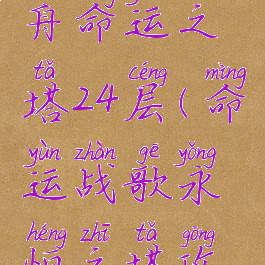 舟命运之
tǎ céng mìng
塔24层(命
yùn zhàn gē yǒng
运战歌永
héng zhī tǎ gōng
恒之塔攻